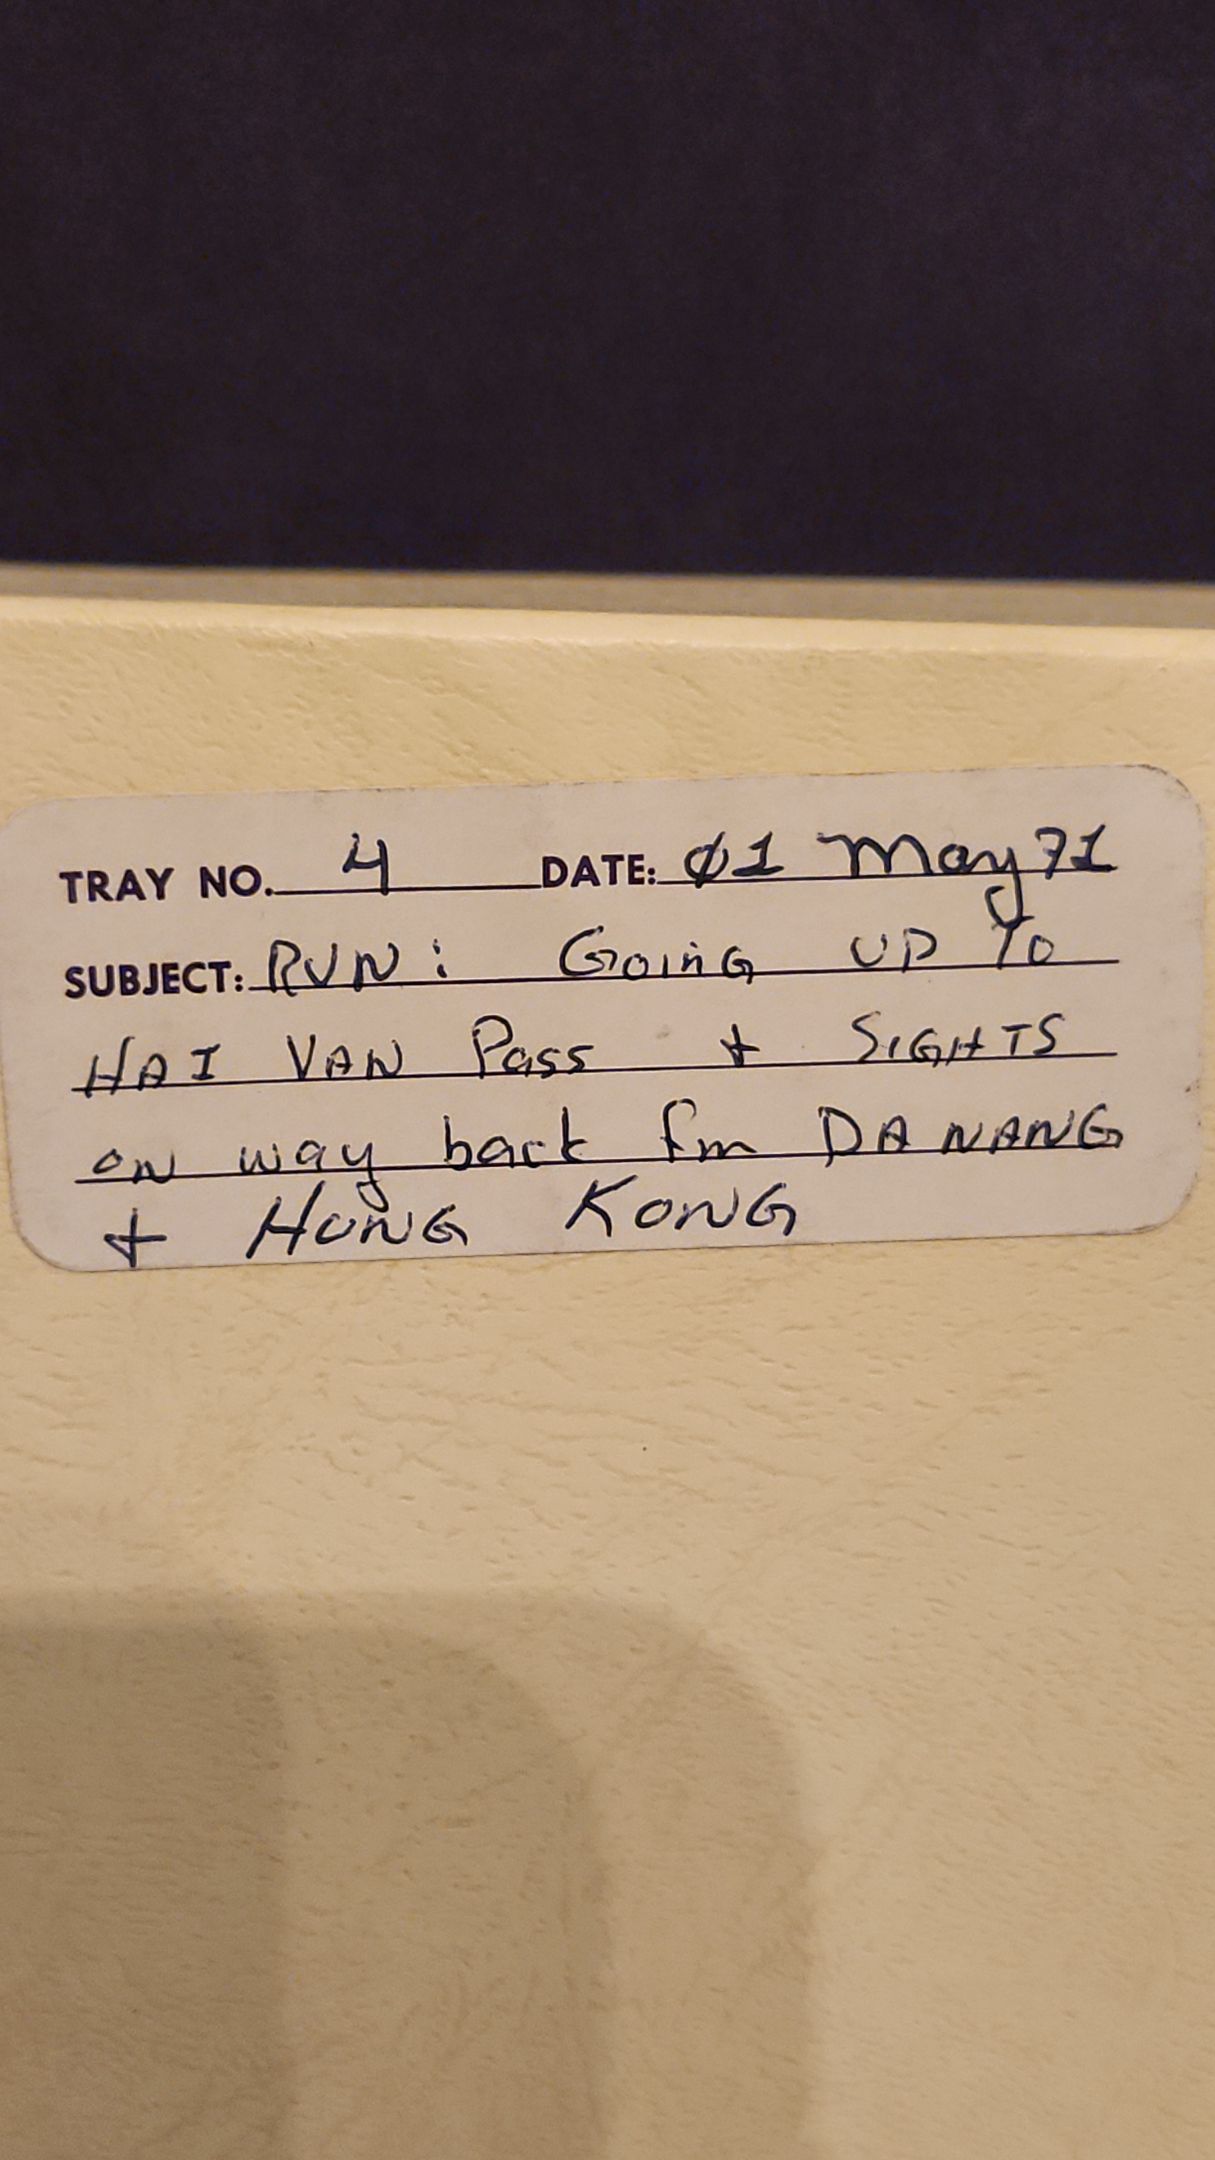 TRAY NO. 4 DATE: Ø1 May 71
SUBJECT: RVN: GOING UP TO
HAI VAN Pass + SIGHTS
ON way back fm DA NANG
+ HONG KONG